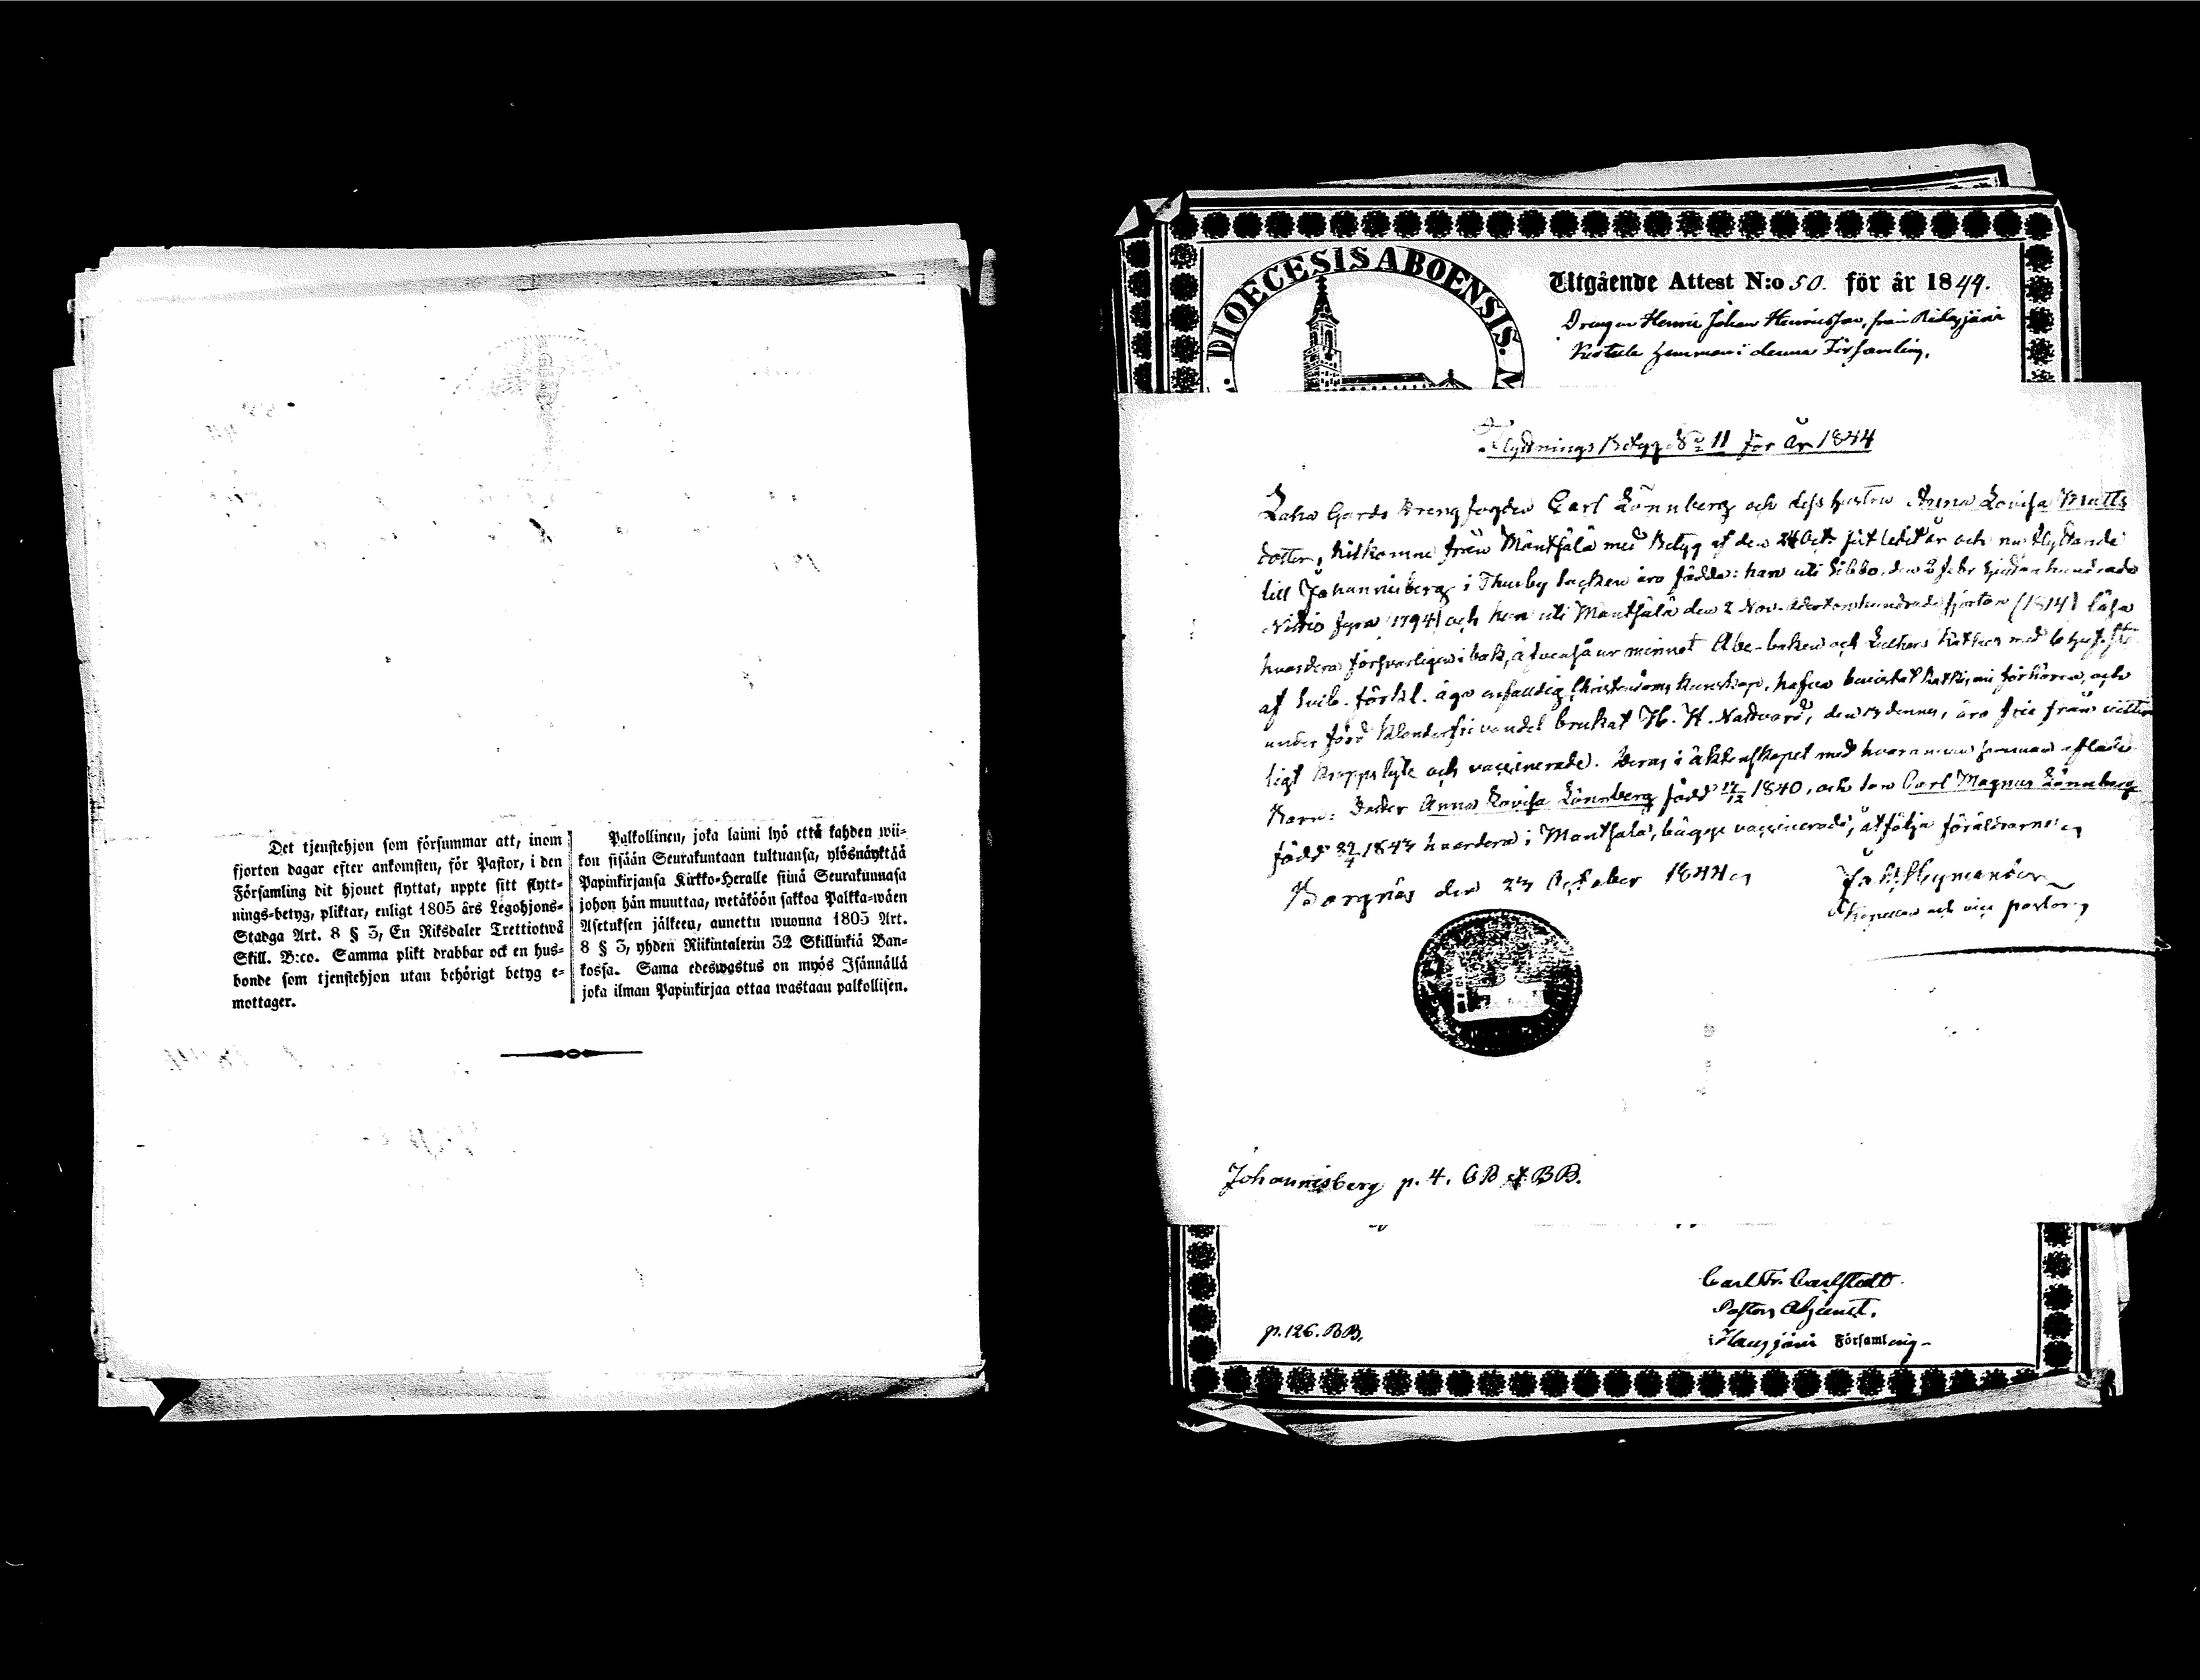 Det tjenstehjon som försummar att, inom
fjorton dagar efter ankomsten, för Pastor, i den
Församling dit hjonet flyttat, uppte sitt flytt-
nings-betyg, pliktar, enligt 1805 års Legohjons-
Stadga Art. 8 § 3, En Riksdaler Trettiotwå
Skill. B:co. Samma plikt drabbar ock en hus-
bonde som tjenstehjon utan behörigt betyg e-
mottager.
Palkollinen, joka laimi lyö että kahden wii-
kon sisään Seurakuntaan tultuansa, ylösnäyttää
Papinkirjansa Kirkko-Heralle siinä Seurakunnasa
johon hän muuttaa, wetäköön sakkoa Palkka-wäen
Asetuksen jälkeen, annettu wuonna 1805 Art.
8 § 3, yhden Riikintalerin 32 Skillinkiä Ban-
kossa. Sama edeswastus on myös Isännällä
joka ilman Papinkirjaa ottaa wastaan palkollisen.
DIOECESIS ABOENSIS.
Utgående Attest N:o 50. för år 1844.
Drengen Henric Johan Henricsson, från
hemman i denna Församling.
Flyttnings Betyg No 11 för År 1844
Laha Gårds Drengfogden Carl Lönnberg och dess hustru Anna Lovisa Matts
dotter, hitkomne från Mäntsälä med Betyg af den 24 Oct. sistledit år och nu flyttande
till Johannisberg i Thusby Socken äro födde: han uti Sibbo den 2 Febr. Sjuttonhundrade
Nittio fyra (1794) och hon uti Mäntsälä den 2 Nov. Adertonhundrade fjorton (1814) läsa
hvardera försvarligen i bok, äfvenså ur minnet Abc-boken och Luthers
af Sveb. förkl. äga Christendoms kunskap, hafva bevistat förhören, och
under brukat H. H. Nattvard, den denna, äro frie från
ligt kroppslyte och vaccinerade. Deras i äktenskapet med hvarannan sammanaflade
Barn: Dotter Anna Lovisa Lönnberg född 17/12 1840, och son Carl Magnus Lönnberg
född 22/4 1843 hvardera i Mäntsälä, bägge vaccinerade, åtfölja föräldrarne
Borgnäs den 23 October 1844
Kapellan och vice pastor
Johannisberg p. 4. CB et BB.
Carl Fr. Carlstedt
Pastors Adjunct.
i Hausjärvi Församling
p. 126. BB.